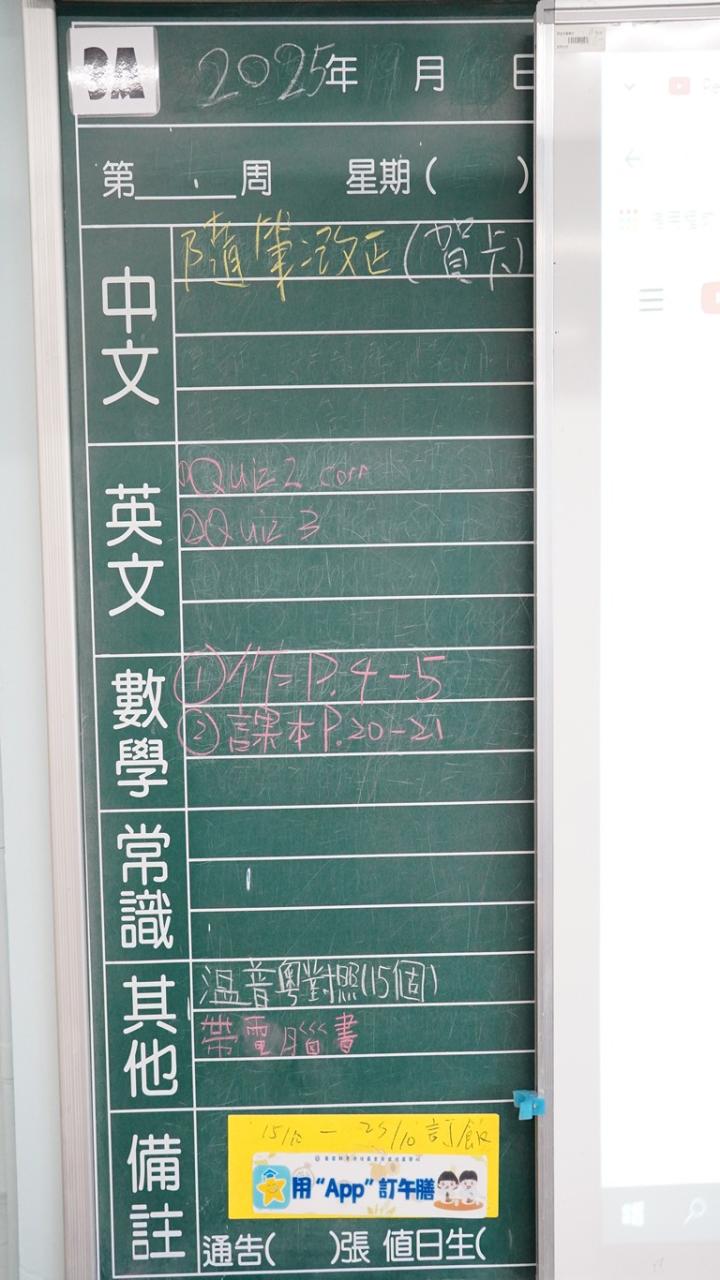 3A 2025年 月 日
第 周 星期( )
中文
隨筆改正(賀卡)
英文
①Quiz 2 corr
②Quiz 3
數學
①作=P.4-5
②課本P.20-21
常識
其他
溫普粵對照(15個)
帶電腦書
備註
15/10 - 25/10 訂飯
用“App”訂午膳
通告( )張 值日生(